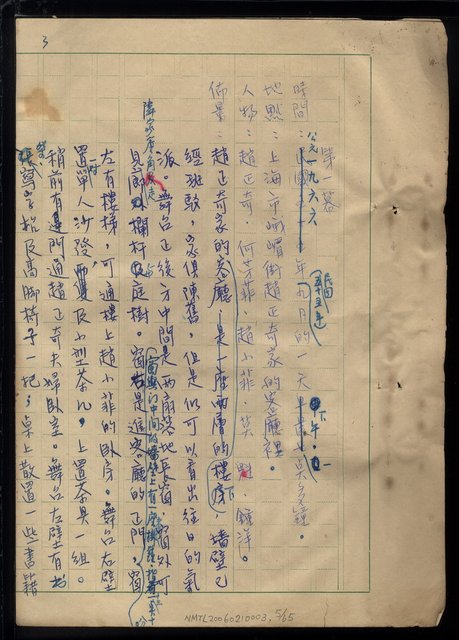 3
第一幕
時間：公元一九六六年九月的一天下午。
民國五十五年
地點：上海市峨嵋街趙正奇家的客廳裡。
人物：趙正奇、何芝菲、趙小菲、英、鐘洋。
佈景：趙正奇家的客廳，是一座兩層的樓房，牆壁已
經斑駁，傢俱陳舊，但是仍可以看出往日的氣
派。舞台正後方中間是兩扇落地長窗，窗外可
見欄杆及庭樹。窗右是進客廳的正門，窗
左有樓梯，可通樓上趙小菲的臥房。舞台右壁
置單人沙發及小型茶几，上置茶具一組。
稍前有邊門通趙正奇夫婦臥室。舞台左壁有
寫字枱及高脚椅子一把，桌上散置一些書籍
NMTL20060210003, 5/65